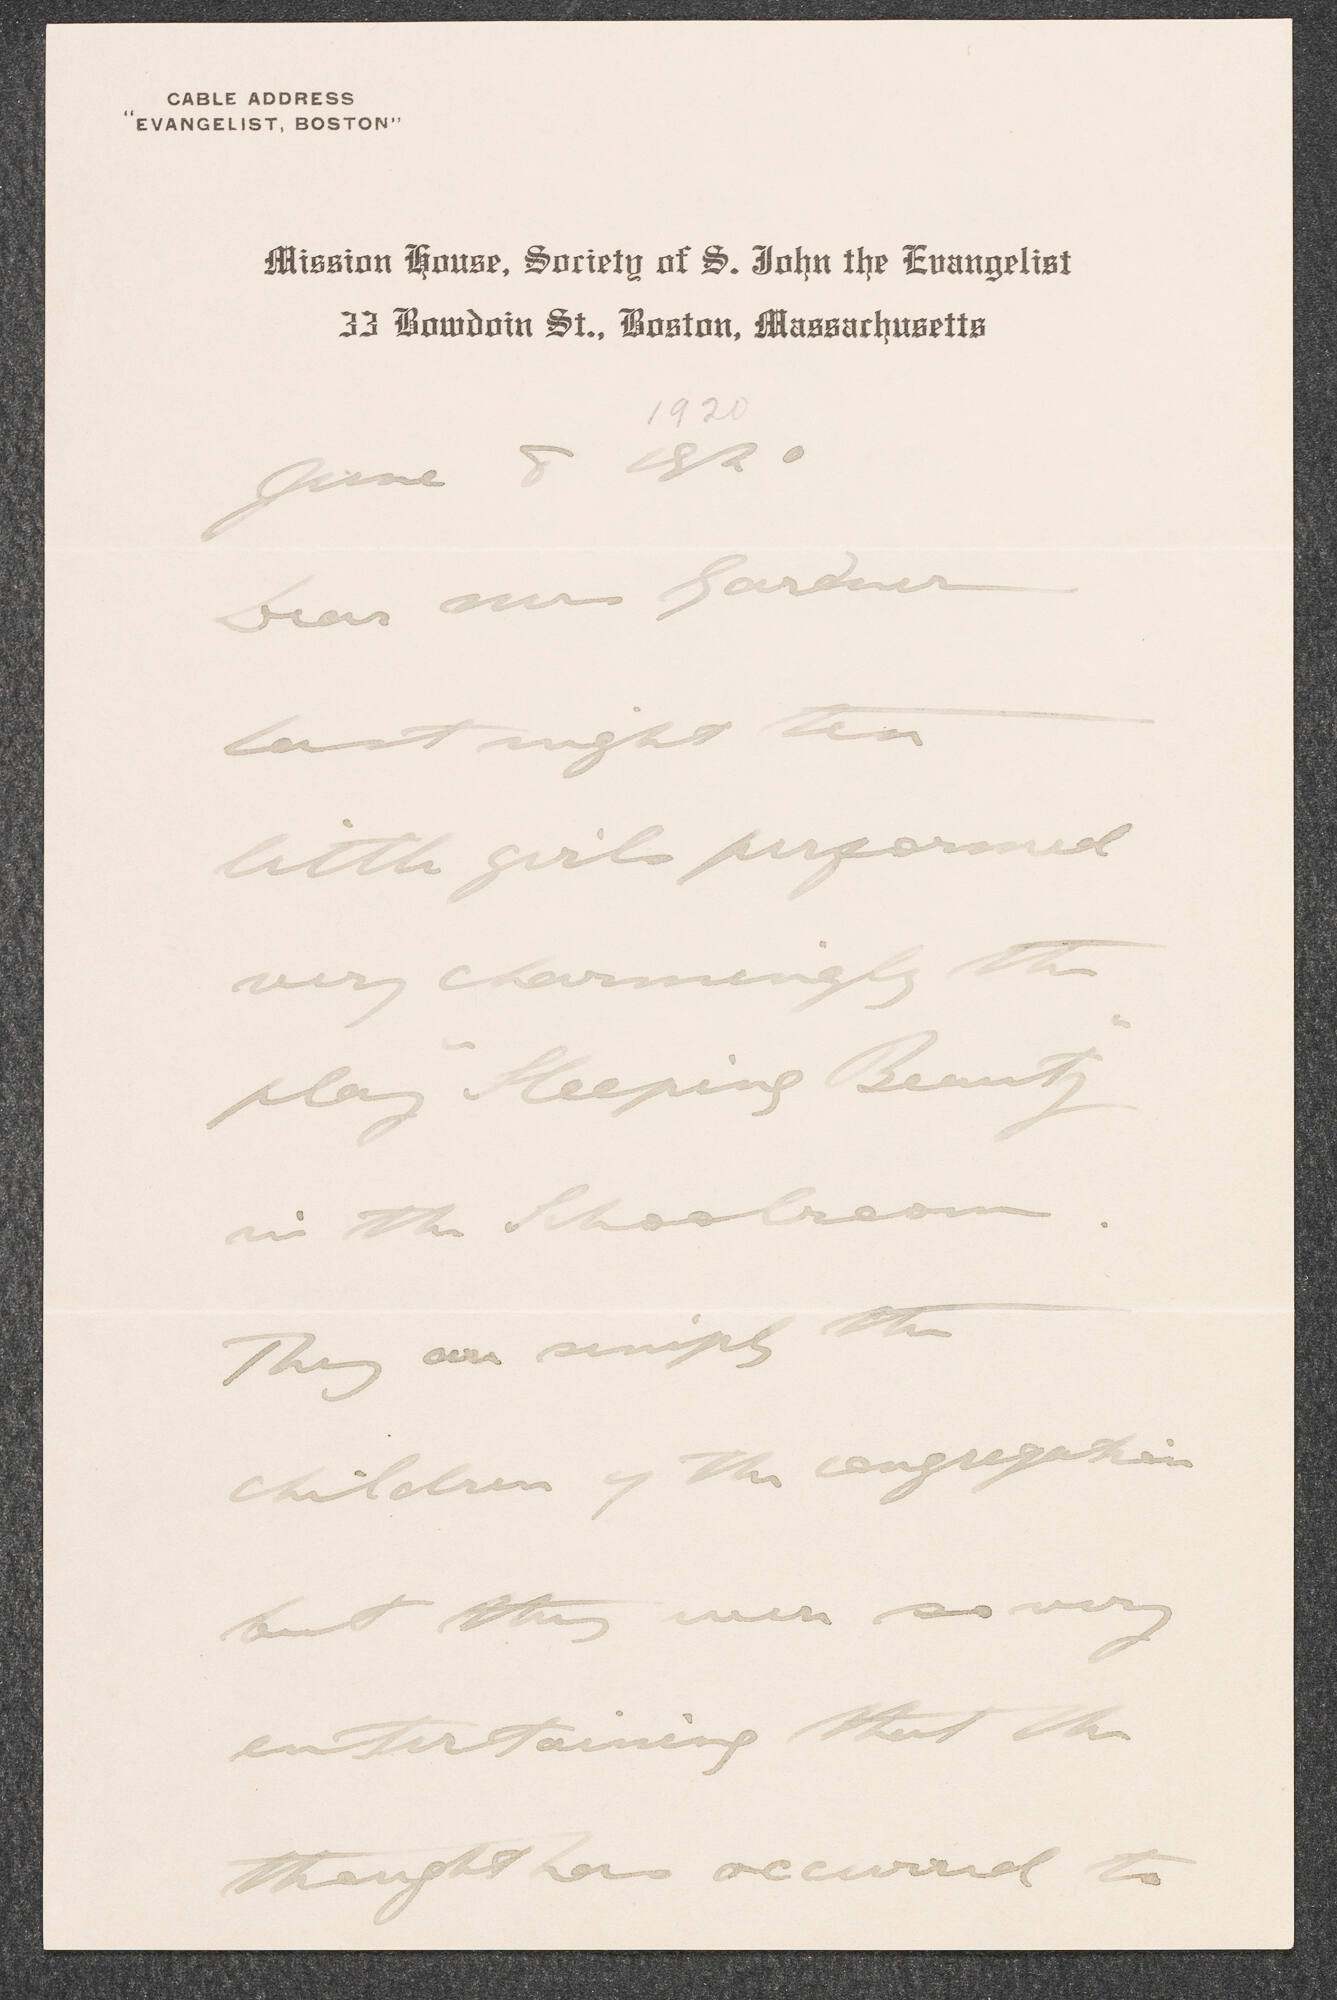 CABLE ADDRESS
"EVANGELIST, BOSTON"
Mission House, Society of S. John the Evangelist
33 Bowdoin St., Boston, Massachusetts
1920
June 8 1920
Dear Mrs Gardner
Last night ten
little girls performed
very charmingly the
play "Sleeping Beauty"
in the Schoolroom.
They are simply the
children of the congregation
but they were so very
entertaining that the
thought has occurred to